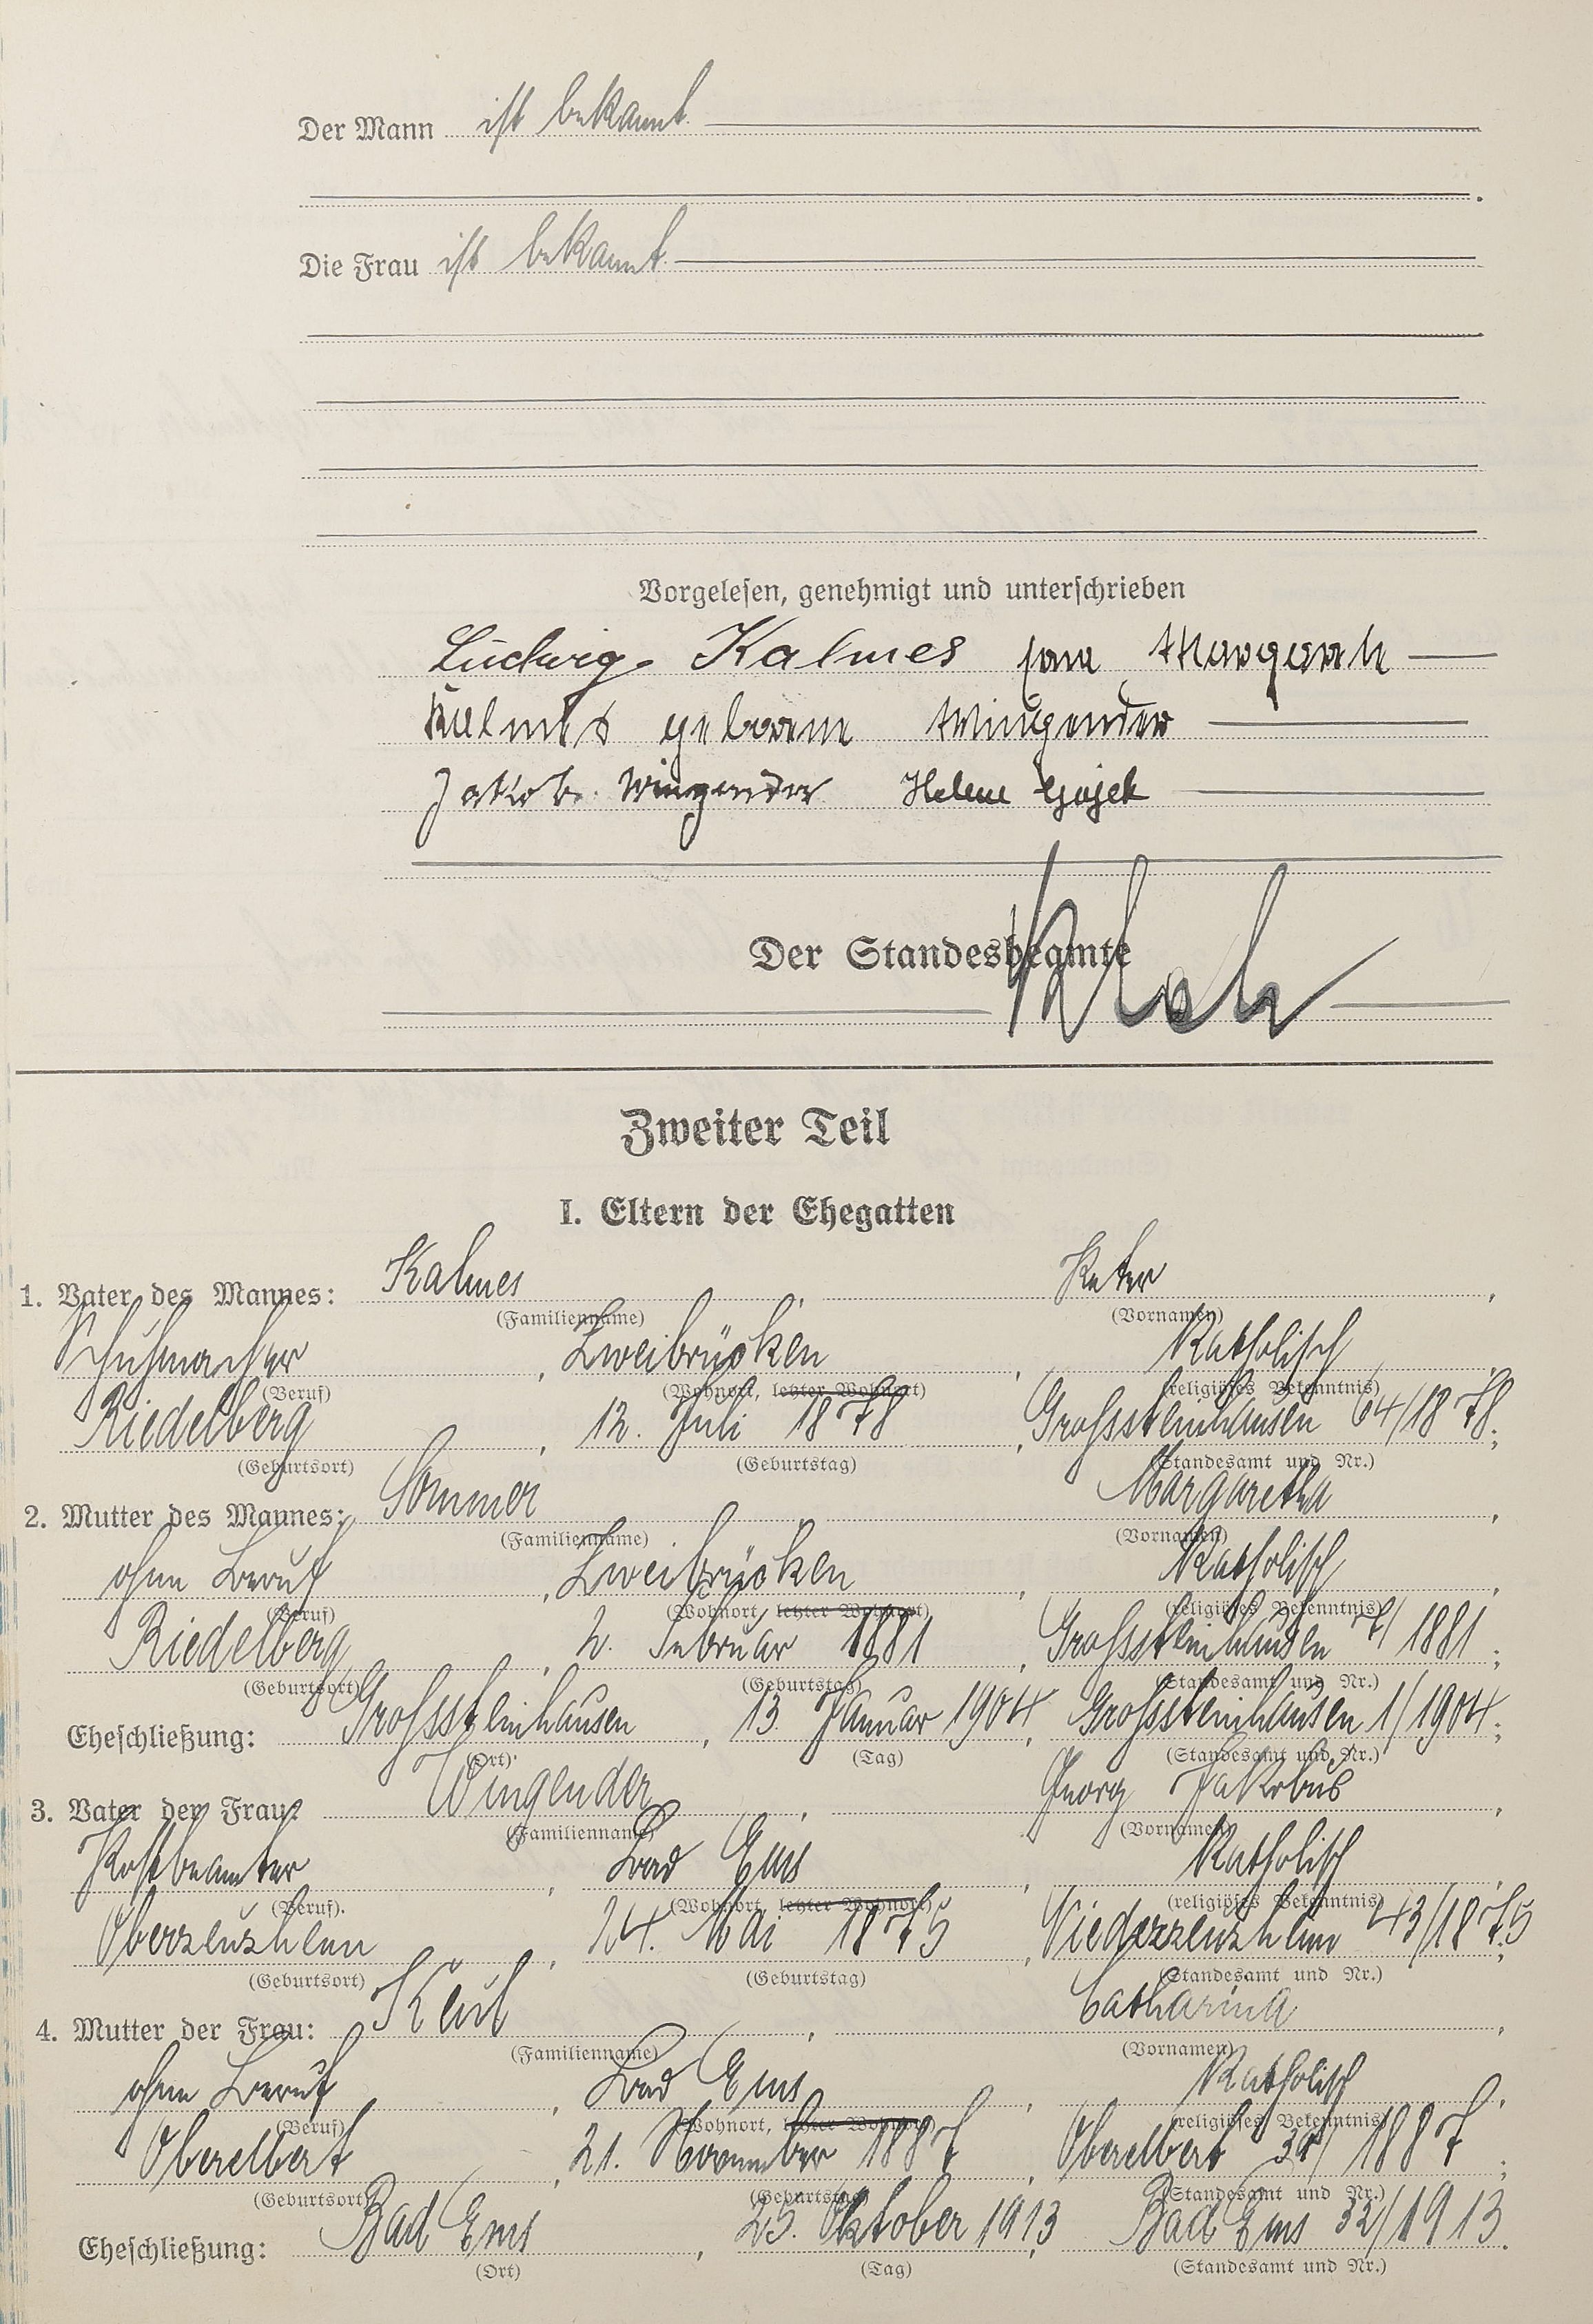 Der Mann ist bekannt.
Die Frau ist bekannt.
Vorgelesen, genehmigt und unterschrieben
Ludwig Kalmes Frau Margarete
Kalmes geborene Wingender
Jakob Wingender Helene
Der Standesbeamte
Zweiter Teil
I. Eltern der Ehegatten
1. Vater des Mannes: Kalmes, Peter,
(Familienname) (Vornamen)
Schuhmacher, Zweibrücken, Katholisch,
(Beruf) (Wohnort, letzter Wohnort) (religiöses Bekenntnis)
Riedelberg, 12. Juli 1878, Grosssteinhausen 64/1878;
(Geburtsort) (Geburtstag) (Standesamt und Nr.)
2. Mutter des Mannes: Sommer, Margaretha,
(Familienname) (Vornamen)
ohne Beruf, Zweibrücken, Katholisch,
(Beruf) (Wohnort, letzter Wohnort) (religiöses Bekenntnis)
Riedelberg, 2. Februar 1881, Grosssteinhausen 7/1881;
(Geburtsort) (Geburtstag) (Standesamt und Nr.)
Eheschließung: Grosssteinhausen, 13. Januar 1904, Grosssteinhausen 1/1904;
(Ort) (Tag) (Standesamt und Nr.)
3. Vater der Frau: Wingender, Georg Jakobus,
(Familienname) (Vornamen)
Postbeamter, Bad Ems, Katholisch,
(Beruf). (Wohnort, letzter Wohnort) (religiöses Bekenntnis)
Oberzeuzheim, 24. Mai 1875, Niederzeuzheim 43/1875;
(Geburtsort) (Geburtstag) (Standesamt und Nr.)
4. Mutter der Frau: Keul, Catharina,
(Familienname) (Vornamen)
ohne Beruf, Bad Ems, Katholisch,
(Beruf) (Wohnort, letzter Wohnort) (religiöses Bekenntnis)
Oberelbert, 21. November 1887, Oberelbert 1887;
(Geburtsort) (Geburtstag) (Standesamt und Nr.)
Eheschließung: Bad Ems, 25. Oktober 1913, Bad Ems 32/1913.
(Ort) (Tag) (Standesamt und Nr.)